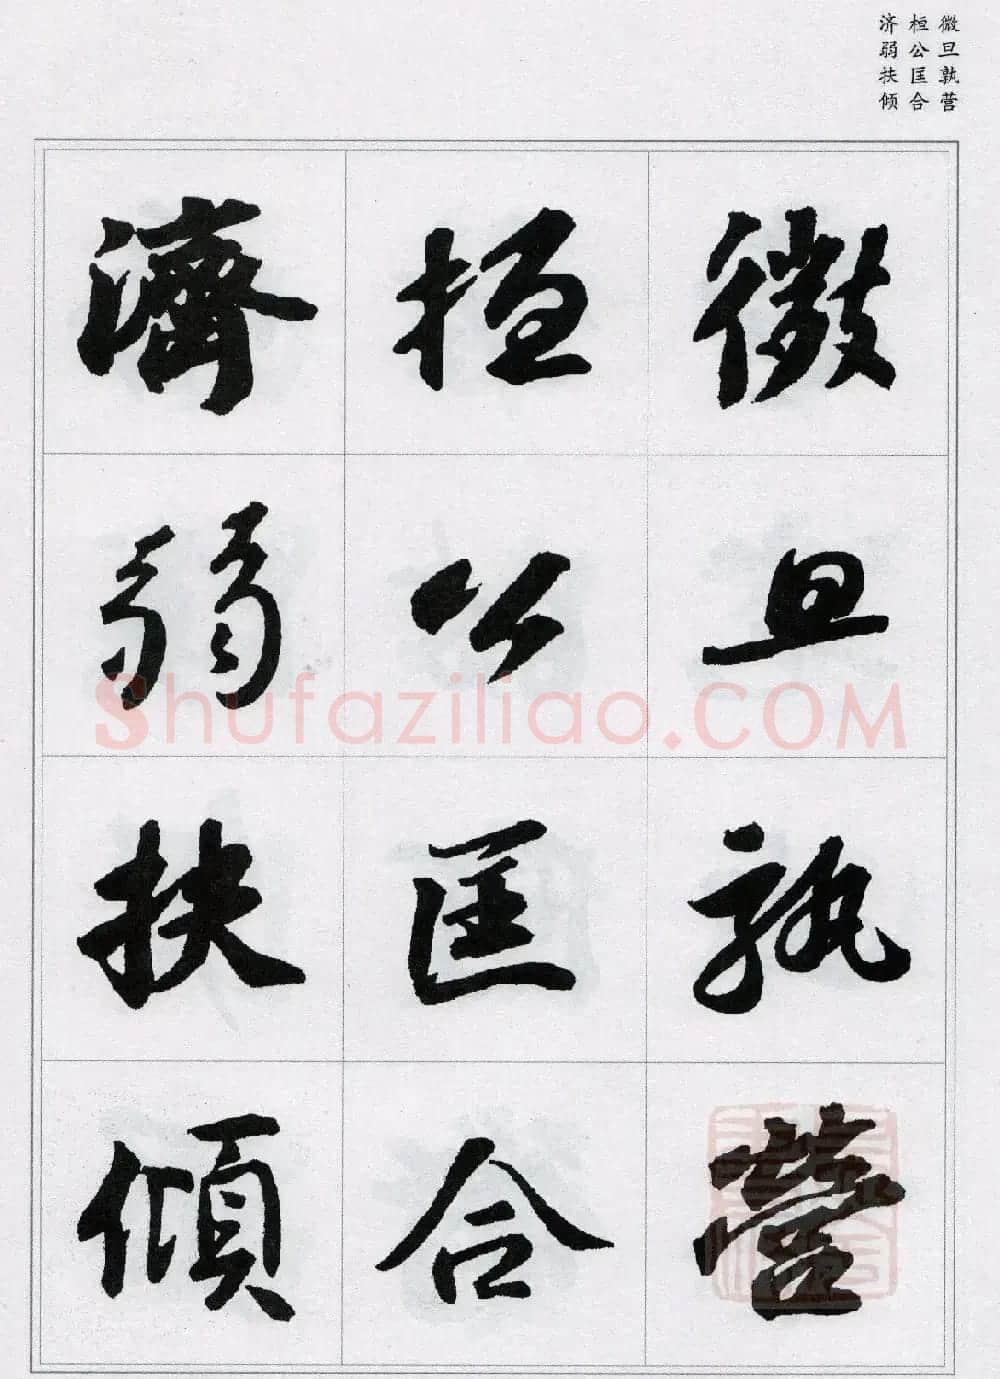 微旦孰营
桓公匡合
济弱扶倾
微旦孰營
桓公匡合
濟弱扶傾
Shufaziliao.COM